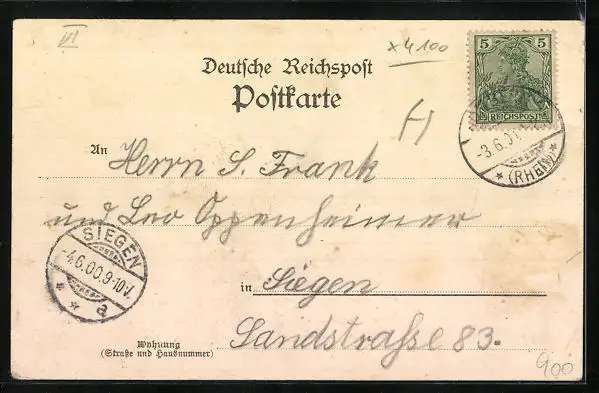 VI
x 4.100
5 5
REICHSPOST
Deutsche Reichspost
Postkarte
-3.6.0
* (RHEIN) *
An
Herrn S. Frank
und Leo Oppenheimer
SIEGEN
-4.6.00.9-10V.
* * a
in Siegen
Sandstraße 83.
Wohnung
(Straße und Hausnummer)
900